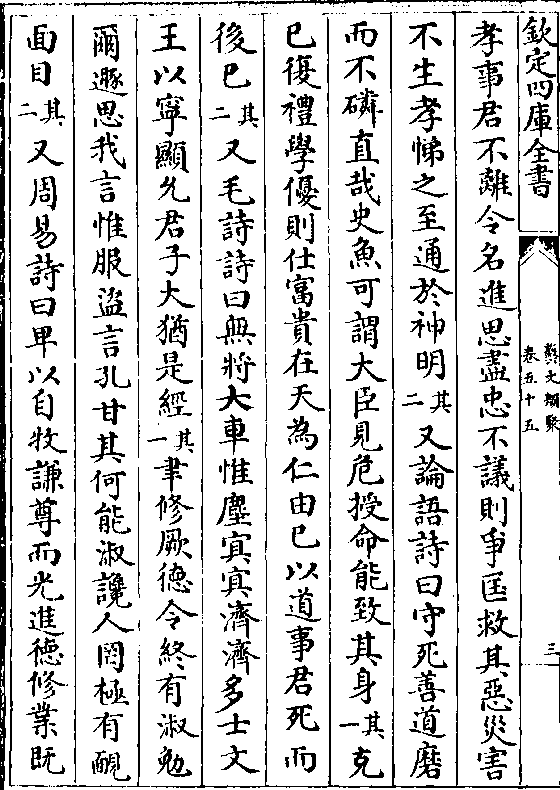 欽定四庫全書
藝文類聚
卷五十五
三
孝事君不離令名進思盡忠不議則爭匡救其惡災害
不生孝悌之至通於神明其二又論語詩曰守死善道磨
而不磷直哉史魚可謂大臣見危授命能致其身其一克
已復禮學優則仕富貴在天為仁由已以道事君死而
後已其二又毛詩詩曰無將大車惟塵㝠㝠濟濟多士文
王以寧顯允君子大猶是經其一聿修厥德令終有淑勉
爾遯思我言惟服盜言孔甘其何能淑讒人罔極有靦
面目其二又周易詩曰卑以自牧謙尊而光進德修業既